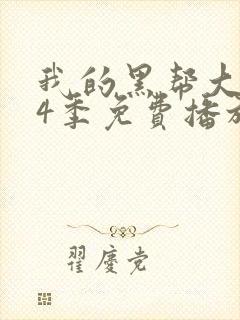 我的黑帮大
4季免费播放
翟庆党